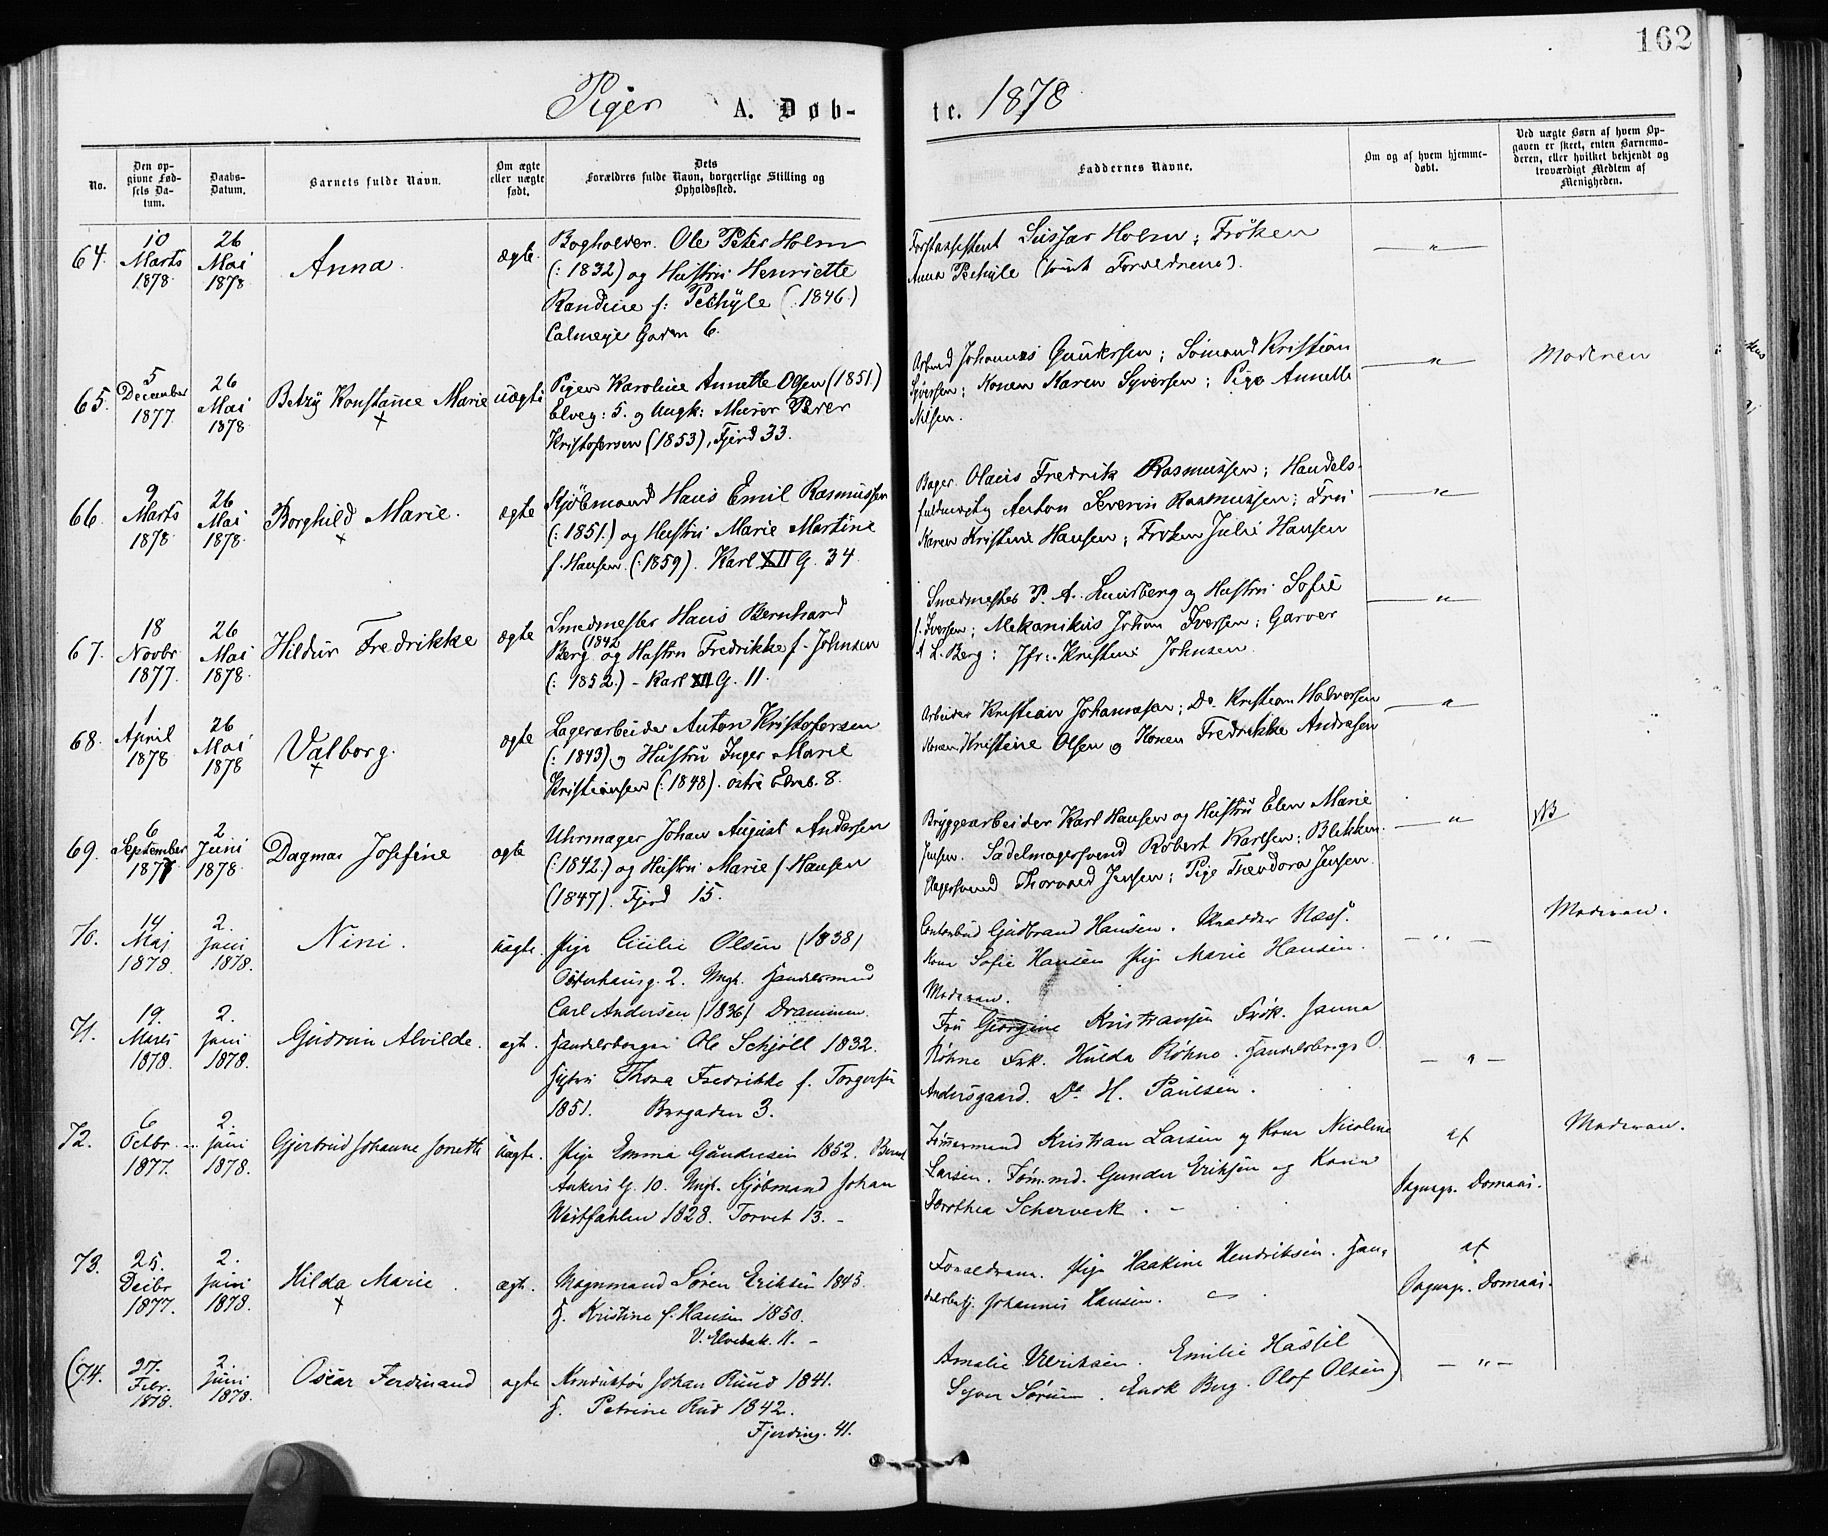 162
Piger A. Døb-
te. 1878
No.
Den op-
givne Fød-
sels Da-
tum.
Daabs-
Datum.
Barnets fulde Navn.
Om ægte
eller uægte
født.
Dets
Forældres fulde Navn, borgerlige Stilling og
Opholdssted.
Faddernes Navne.
Om og af hvem hjemme-
døbt.
Ved uægte Børn af hvem Op-
gaven er skeet, enten Barnemo-
deren, eller hvilket bekjendt og
troværdigt Medlem af
Menigheden.
64.
10
Marts
1878
26
Mai
1878
Anna.
ægte.
Bogholder. Ole Peter Holm
(: 1832) og Hustru Henriette
Randine f: Pethyle (: 1846.)
Calmeye Gaden 6.
Forstassistent Holm; Frøken
Anna Pethyle (samt Forældrene).
"
65.
5
December
1877
26
Mai
1878
Betzy Konstance Marie
x
uægte
Pigen Karoline Annette Olsen (1851.)
Elveg: 5. og Ungk: Murer Peter
Kristofersen (1853), Fjerd 33.
Arbmd Johannes Gundersen; Sømand Kristian
Syversen; Konen Karen Syversen; Pige Annette
Nilsen.
"
Moderen
66.
9
Marts
1878
26
Mai
1878
Borghild Marie.
x
ægte
Kjøbmand Hans Emil Rasmussen
(: 1851.) og Hustru Marie Martine
f. Hansen. (: 1859). Karl XII G. 34.
Bager. Olaus Fredrik Rasmussen; Handels-
fuldmægtig Anton Severin Rasmussen; Fru
Karen Kristine Hansen; Frøken Julie Hansen
"
67.
18
Novbr
1877.
26
Mai
1878.
Hildur Fredrikke
ægte
Smedmester Hans Bernhard
Berg (1842 og Hustru Fredrikke f. Johnsen
(: 1852.) - Karl XII G. 11.
Smedmester P. A. Lundberg og Hustru Sofie
f. Iversen; Mekanikus Johan Iversen; Garver
A L. Berg; Jfr: Kristine Johnsen
"
68.
1
April
1878
26
Mai
1878
Valborg.
x
ægte
Lagerarbeider Anton Kristofersen
(: 1843) og Hustru Inger Marie
Kristiansen (: 1848). østre Elveb. 8.
Arbeider Kristian Johannesen; Do Kristian Halvorsen
Konen Kristine Olsen og Konen Fredrikke Andresen
"
69.
6
September
1877
2
Juni
1878.
Dagmar Josefine
ægte
Uhrmager Johan August Andersen
(: 1842.) og Hustru Marie f Hansen
(1847). Fjerd 15.
Bryggearbeider Karl Hansen og Hustru Elen Marie
Jensen. Sadelmagersvend Robert Karlsen; Blikken-
slagersvend Thorvald Jensen; Pige Theodora Jensen.
"
NB
70.
14
Maj
1878.
2.
Juni
1878.
Nini.
uægte.
Pige Cicilie Olsen (1838)
Osterhausg. 2. Ungk. Handelsmd
Carl Andersen (1836) Drammen.
Contorbud Gudbrand Hansen. Næss.
Kone Sofie Hansen Pige Marie Hansen.
Moderen.
"
Moderen.
71.
19.
Marts
1878.
2.
Juni
1878.
Gudrun Alvilde.
ægt.
Handelsborger Ole Schjøll 1832.
Hustru Thora Fredrikke f. Torgersen
1851. Brogaden 3.
Fru Georgine Kristiansen Frøk. Janna
Røhne Frk. Hulda Røhne. Handelsborger O.
Andersgaard. Do H. Paulsen.
"
72.
6
Octbr
1877.
2.
Juni
1878.
Gjertrud Johanne
uægte.
Pige Emma Gundersen 1852. Bernt
Ankers G. 10. Ungk. Kjøbmand Johan
Westfahlen 1828. Torvet 13. -
Tømmermand Kristian Larsen og Kone Nicoline
Larsen. Tøm.md. Gunder Eriksen og Kone
Dorothea Scherveck.
af
Sognepr. Domaas.
Moderen.
73.
25.
Decbr
1877.
2.
Juni
1878.
Hilda Marie
x
ægt.
Vognmand Søren Eriksen 1845.
H. Kristine f. Hansen 1850.
V. Elvebak. 11. -
Forældrene. Pige Haakine Hendriksen. Han-
delsbetj. Johannes Hansen.
af
Sognepr. Domaas.
(74.
27.
Febr.
1878.
2.
Juni
1878.
Oscar Ferdinand
ægte
Konduktør Johan Ruud 1841.
H. Petrine Rud 1842.
Fjerding. 41.
Amalie Ulriksen. Emilie Hassel
Syver Sørum. Berg. Olof Olsen)
"